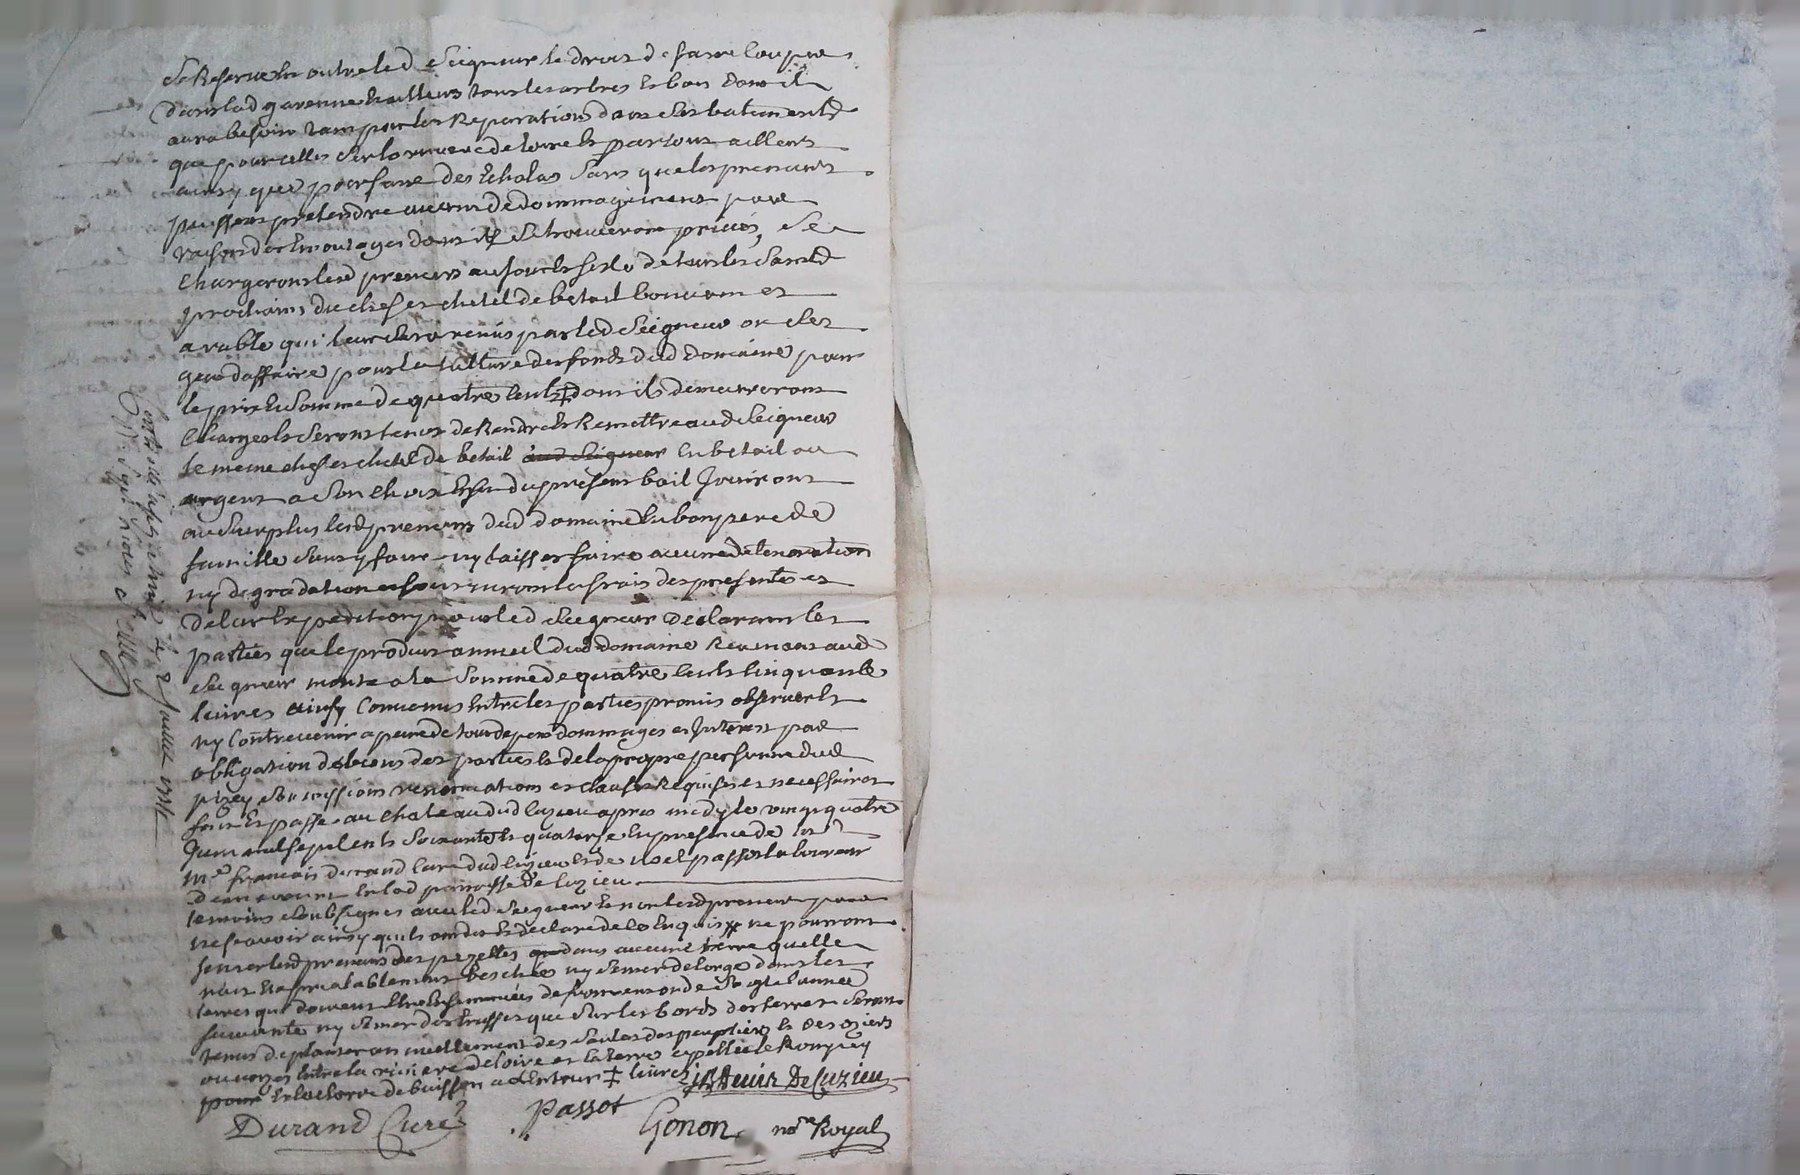 Se Reserve en outre led Seigneur le droit de faire couper
dans lad garenne et ailleurs tous les arbres et bois dont il
aura besoin tant pour les Reparations dans ses batiments
que pour celles sur la riviere de loire et partout ailleurs
ainsy que pour faire des Echalas sans que les preneurs
puissent pretendre aucuns dedommagements pour
raison des Emoutages dont ils se trouveront privés, Se
Chargeront lesd preneurs au jour et feste de tous les Saints
prochains du chef et chetel de betail bouvum et
arable qui leur sera remis par led Seigneur ou ses
gens d'affaire pour la culture des fonds dud Domaine pour
le prix et Somme de quatre cents ‡ dont ils demeureront
Charges et seront tenus de Rendre et Remettre aud Seigneur
le meme chef et chetel de betail aud Seigneur en betail ou
argent a son choix a fin du present bail Jouiront
au Surplus lesd preneurs dud domaine en bon pere de
famille sans y faire ny laisser faire aucune deterioration
ny degradation et fourniront les frais des presentes et
de leur Expedition pour led Seigneur Declarant les
parties que le produit annuel dud domaine Revenant aud
Seigneur monte a la Somme de quatre cents cinquante
livres ainsy Convenus entre les parties promis observer et
ny Contrevenir a peine de tous depens dommages et Interest par
obligation de biens des parties et de la propre personne dud
pizey soumissions renonciations et clauses Requises et necessaires
fait et passé au chateau dud Cuzieu apres midy le vingt quatre
Juin mil sept cents soixante et quatorze en presence de
Me francois durand Curé dud Cuzieu et de noel passot laboureur
demeurant en lad paroisse de Cuzieu
temoins soubsignes avec led Seigneur et non lesd preneurs pour
ne scavoir ainsy quils ont dit et declaré de ce Enquis ne pourront
semer lesd preneurs des pezettes dans aucune terre quelle
nait Eté prealablement beschée ny semer de lorge dans les
terres qui doivent etre Ensemencées de froment ou de Seigle lannée
suivante ny semer des truffes que sur les bords des terres Seront
tenus de planter annuellement des saules des peupliers et des oziers
ou vorzes entre la riviere de loire et la terre appellée le Rompey
pour et la clorre de buisson a lentour ‡ livres
JJ Denis De Cuzieu
Durand Curé
passot
Gonon nore Royal